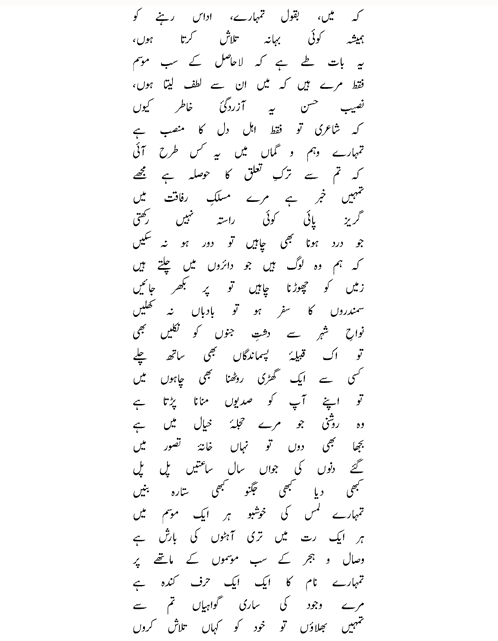 کہ میں، بقول تمہارے، اداس رہنے کو
ہمیشہ کوئی بہانہ تلاش کرتا ہوں،
یہ بات طے ہے کہ لاحاصل کے سب موسم
فقط مرے ہیں کہ میں ان سے لطف لیتا ہوں،
نصیب حسن یہ آزردگیٔ خاطر کیوں
کہ شاعری تو فقط اہل دل کا منصب ہے
تمہارے وہم و گماں میں یہ کس طرح آئی
کہ تم سے ترکِ تعلق کا حوصلہ ہے مجھے
تمہیں خبر ہے مرے مسلکِ رفاقت میں
گریز پائی کوئی راستہ نہیں رکھتی
جو درد ہونا بھی چاہیں تو دور ہو نہ سکیں
کہ ہم وہ لوگ ہیں جو دائروں میں چلتے ہیں
زمیں کو چھوڑنا چاہیں تو پر بکھر جائیں
سمندروں کا سفر ہو تو بادباں نہ کھلیں
نواحِ شہر سے دشتِ جنوں کو نکلیں بھی
تو اک قبیلۂ پسماندگاں بھی ساتھ چلے
کسی سے ایک گھڑی روٹھنا بھی چاہوں میں
تو اپنے آپ کو صدیوں منانا پڑتا ہے
وہ روشنی جو مرے حجلۂ خیال میں ہے
بجھا بھی دوں تو نہاں خانۂ تصور میں
گئے دنوں کی جواں سال ساعتیں پل پل
کبھی دیا کبھی جگنو کبھی ستارہ بنیں
تمہارے لمس کی خوشبو ہر ایک موسم میں
ہر ایک رت میں تری آہٹوں کی بارش ہے
وصال و ہجر کے سب موسموں کے ماتھے پر
تمہارے نام کا ایک ایک حرف کندہ ہے
مرے وجود کی ساری گواہیاں تم سے
تمہیں بھلاؤں تو خود کو کہاں تلاش کروں